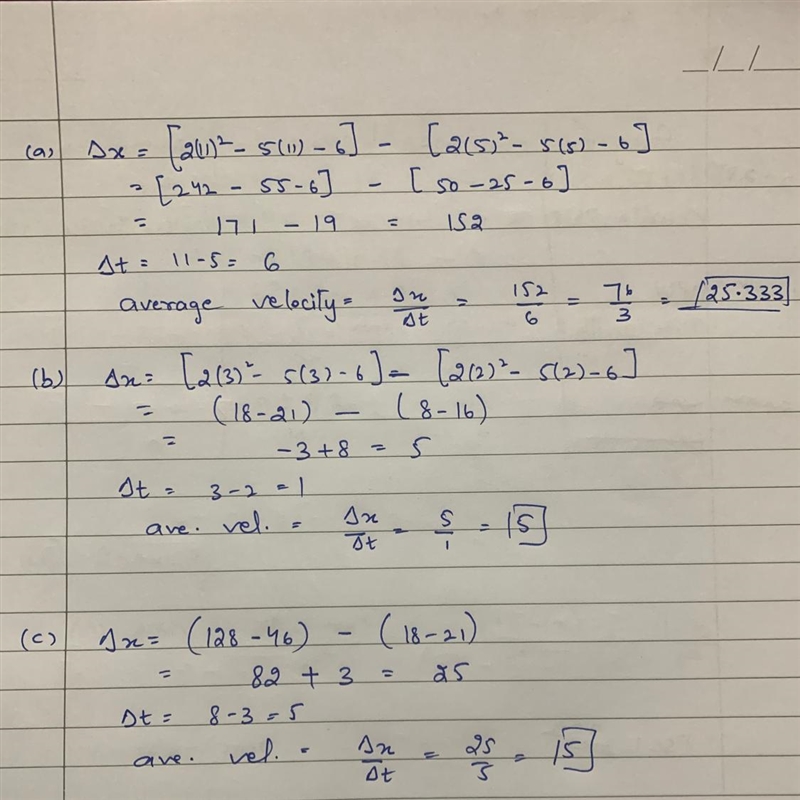 _/_/_
(a) Δx = [2(11)² - 5(11) - 6] - [2(5)² - 5(5) - 6]
= [242 - 55 - 6] - [50 - 25 - 6]
= 171 - 19 = 152
Δt = 11-5 = 6
average velocity = Δx/Δt = 152/6 = 76/3 = 25.333
(b) Δx = [2(3)² - 5(3) - 6] - [2(2)² - 5(2) - 6]
= (18-21) - (8-16)
= -3+8 = 5
Δt = 3-2 = 1
ave. vel. = Δx/Δt = 5/1 = 5
(c) Δx = (128 - 46) - (18-21)
= 82 + 3 = 25
Δt = 8-3 = 5
ave. vel. = Δx/Δt = 25/5 = 5